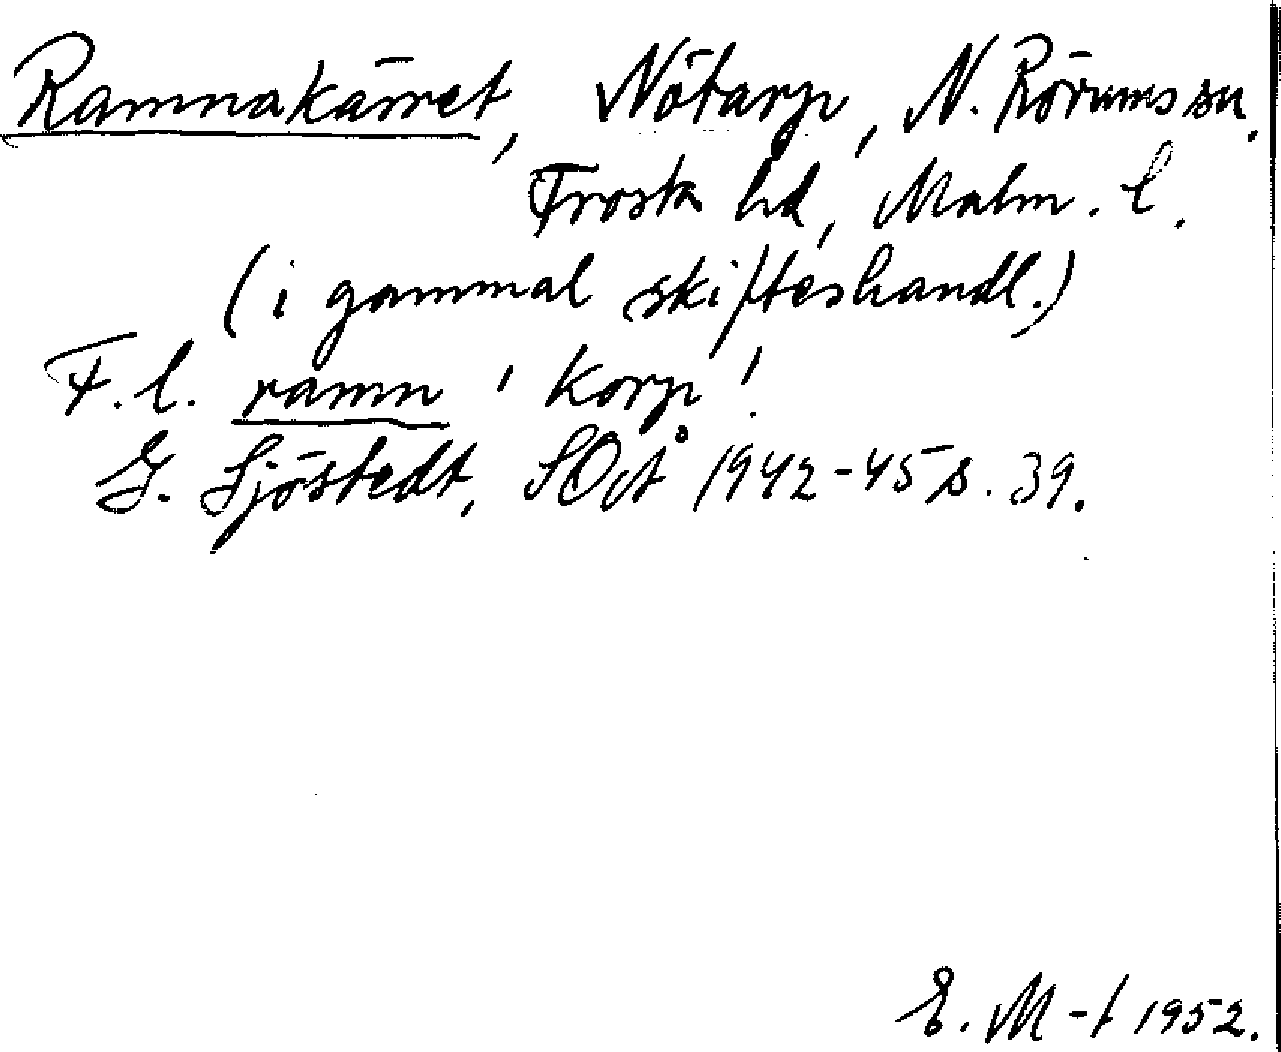 Ramnakärret, Nötarp, N. Rörums sn.
Frosta hd, Malm. l.
(i gammal skifteshandl.)
F. l. ramn 'korp'.
G. Sjöstedt, SOÅ 1942-45 s. 39.
E. M-t 1952.